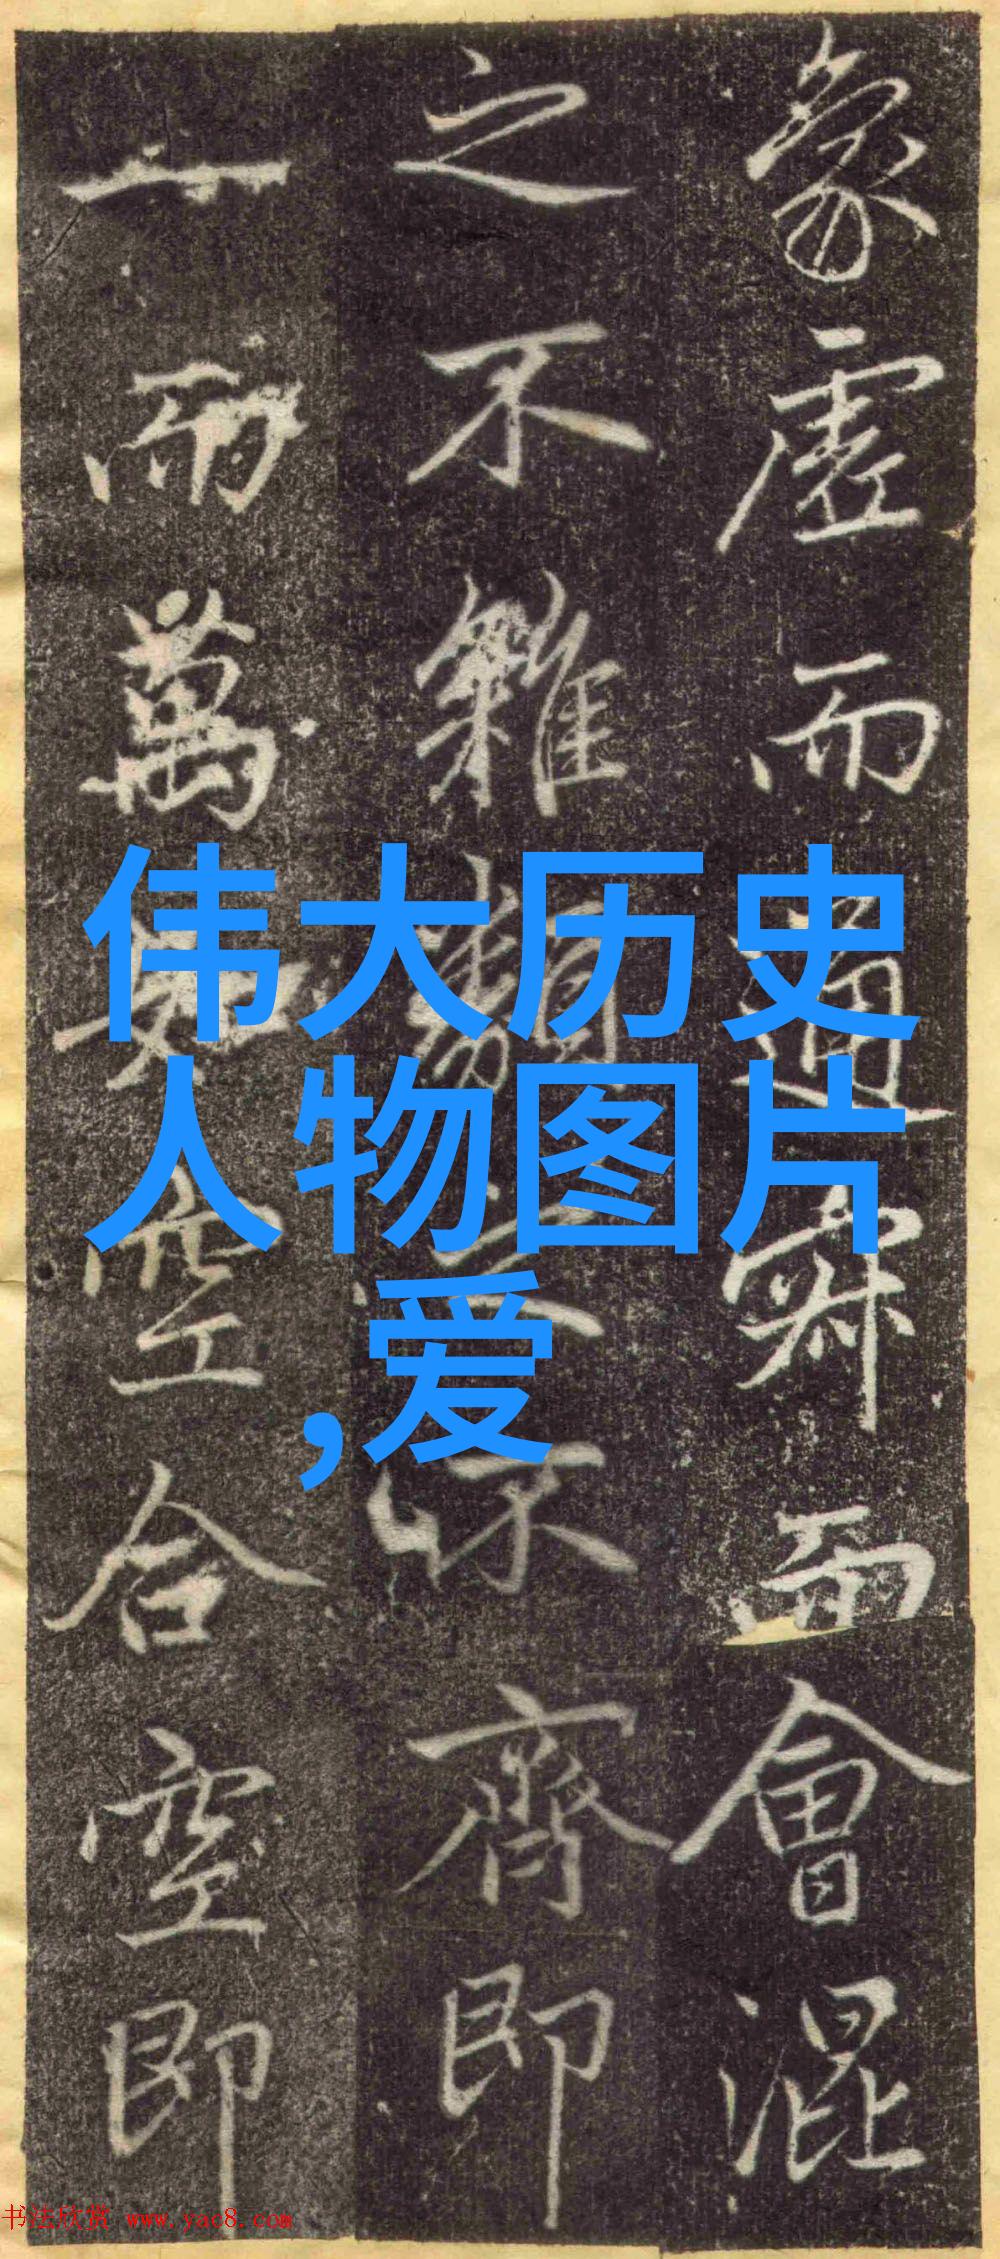 象虛而通而會混
之不雜類之不齊即
一而萬空合空即
伟大历史
人物图片
,爱
书法欣赏 www.yac8.com